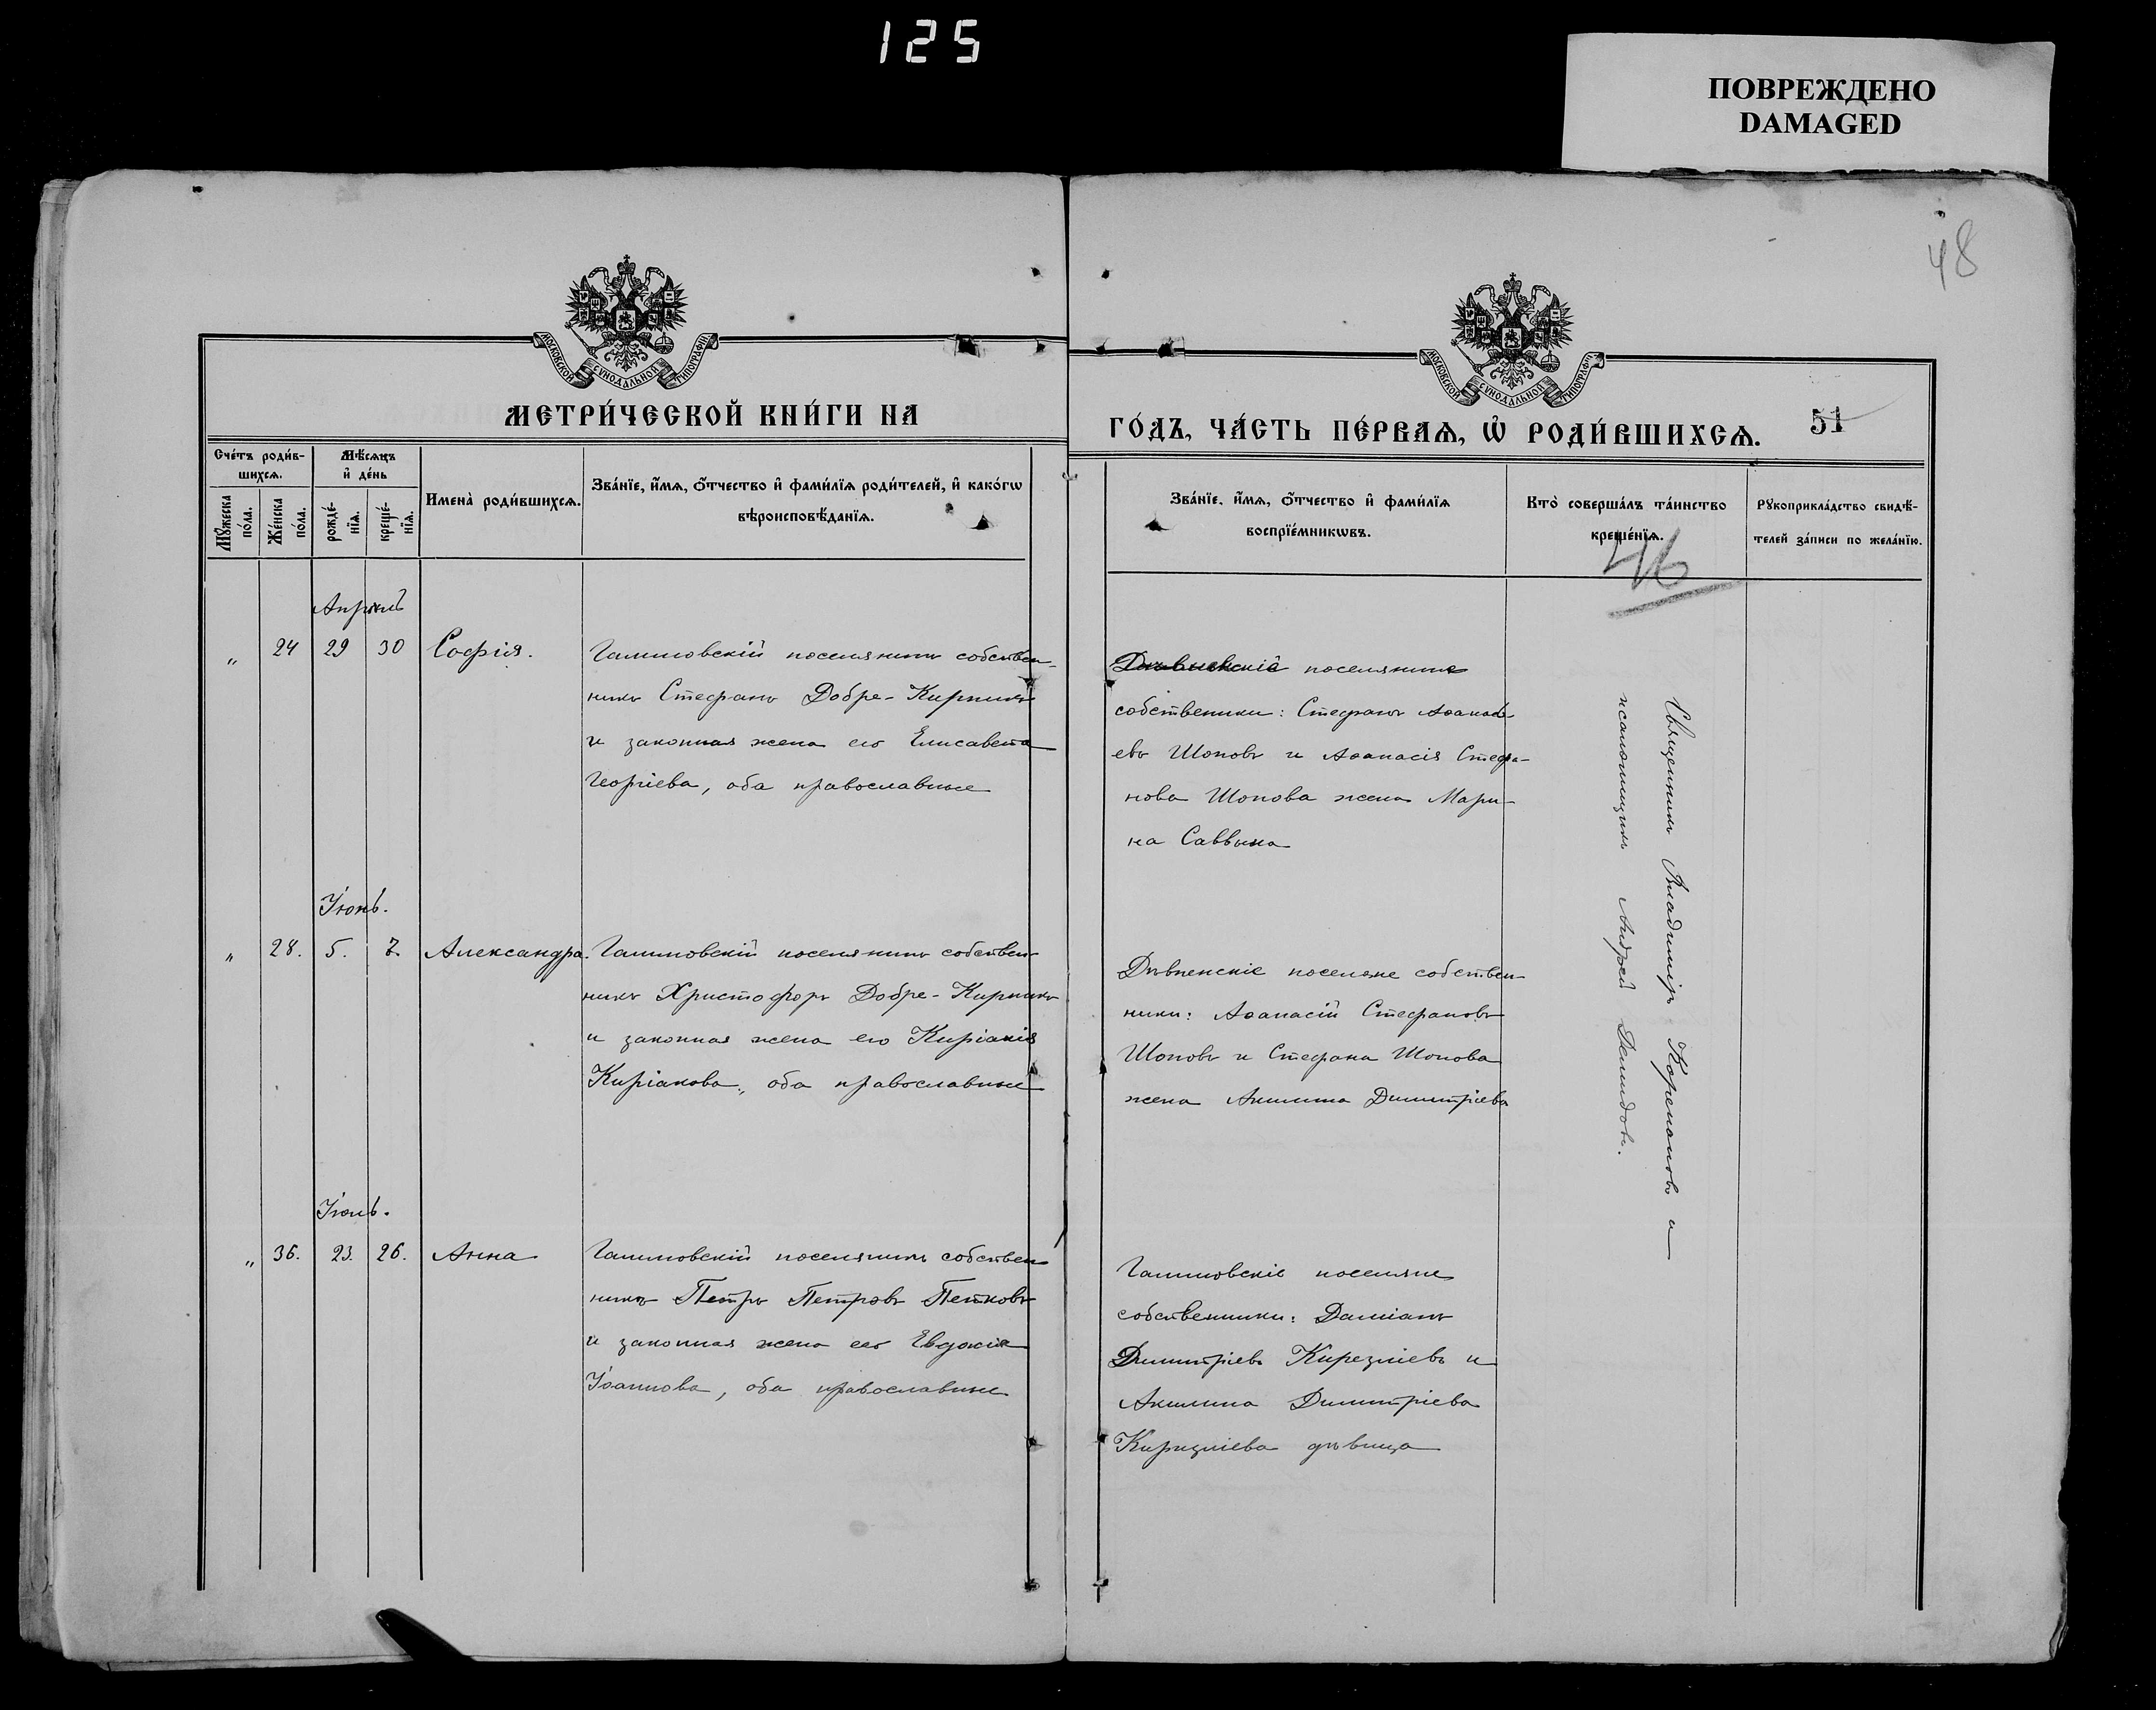 125
ПОВРЕЖДЕНО
DAMAGED
48
МОСКОВСКОЙ СѴНОДАЛЬНОЙ ТИПОГРАФІИ
МОСКОВСКОЙ СѴНОДАЛЬНОЙ ТИПОГРАФІИ
МЕТРИ́ЧЕСКОЙ КНИ́ГИ НА
ГО́ДЪ, ЧА́СТЬ ПЕ́РВАѦ, Ѡ҆ РОДИ́ВШИХСѦ.
51
Сче́тъ роди́в-
шихсѧ.
Мꙋ́жеска
по́ла.
Же́нска
по́ла.
Мѣ́сѧцъ
и҆ де́нь
рожде́-
нїѧ.
креще́-
нїѧ.
Имена̀ роди́вшихсѧ.
Зва́нїе, и҆́мѧ, ѻ҆́тчество и҆ фами́лїѧ роди́телей, и҆ како́гѡ
вѣроисповѣ́данїѧ.
Зва́нїе, и҆́мѧ, ѻ҆́тчество и҆ фами́лїѧ
воспрїе́мникѡвъ.
Кто̀ соверша́лъ та́инство
креще́нїѧ.
Рꙋкоприкла́дство свидѣ́-
телей за́писи по жела́нїю.
46
Апрѣль
„ 24 29 30 Софія.
Галицовскій поселянинъ собствен-
никъ Стефанъ Добре-Киркикъ
и законная жена его Елисавета
Георгіева, оба православные
поселянине
собственики: Стефанъ Аѳанась-
евъ Шоповъ и Аѳанасія Стефа-
нова Шопова жена Мари-
на Саввина
Іюнь.
„ 28. 5. 7. Александра.
Галицовскій поселянинъ собствен-
никъ Христофоръ Добре-Киркикъ
и законная жена его Киріакія
Киріакова, оба православные
Дѣвненскіе поселяне собствен-
ники: Аѳанасій Стефановъ
Шоповъ и Стефана Шопова
жена Акилина Димитріева
Іюль.
„ 36. 23. 26. Анна
Галицовскій поселянинъ собствен
никъ Петръ Петровъ Петковъ
и законная жена его Евдокія
Іоаннова, оба православные
Галицовскіе поселяне
собственники: Даміанъ
Димитріевъ Кирезліевъ и
Акилина Димитріева
Кирезліева дѣвица
Священникъ Владиміръ и
псаломщикъ Андрей Демидовъ.